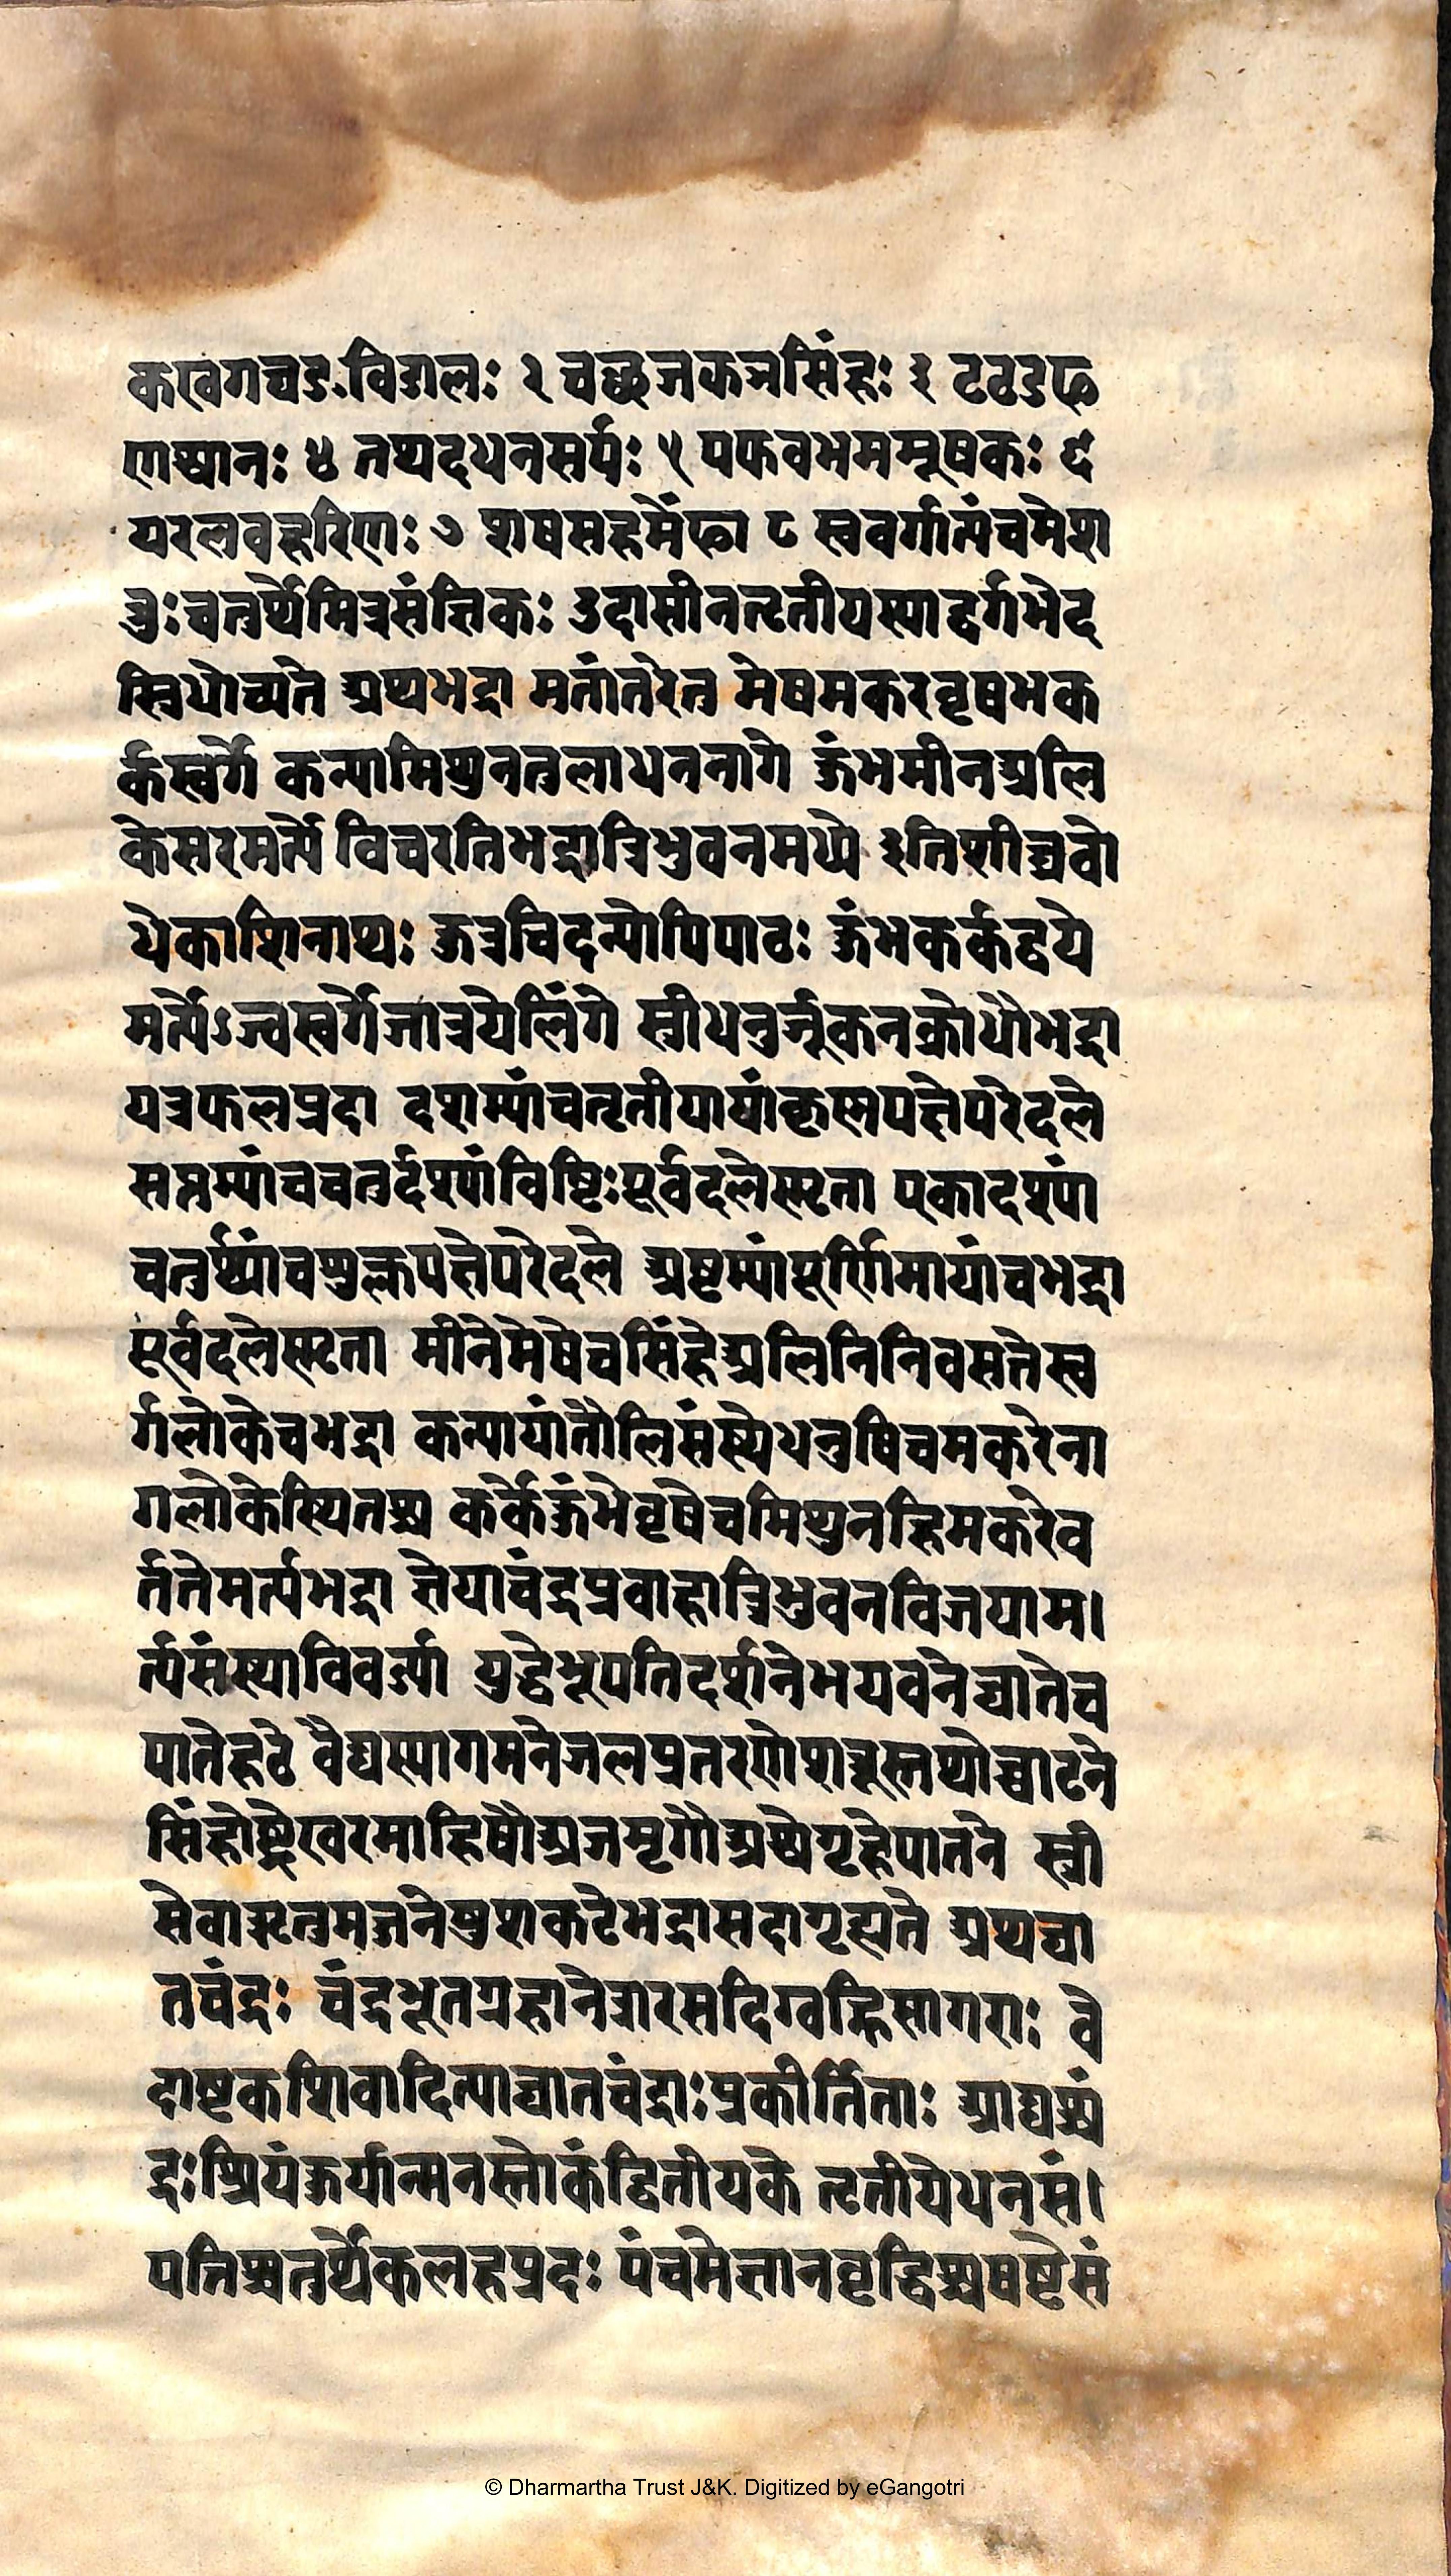 कखगघङविडालः २ चछजकञसिंहः ३ टठडढ
णश्वानः ४ तथदधनसर्पः ५ पफबभममूषकः ६
यरलवहरिणः ७ शषसहमेंढा ८ स्ववर्गात्पंचमेश
त्रुःचतुर्थेमित्रसंज्ञिकः उदासीनतृतीयस्याद्वर्गभेद
स्त्रिधोच्यते अथभद्रा मतांतरेन मेषमकरवृषभक
र्कस्वर्गे कन्यामिथुनतुलाधननागे कुंभमीनअलि
केसरमर्त्ये विचरतिभद्रात्रिभुवनमध्ये इतिशीघ्रबो
धेकाशिनाथः कुत्रचिदन्योपिपाठः कुंभकर्कद्वये
मर्त्येऽब्जस्वर्गेजात्रयेलिंगे स्त्रीधनुर्जूकनक्रोधौभद्रा
यत्रफलप्रदा दशम्यांचतृतीयायांकृष्णपक्षेपरेदले
सप्तम्यांचचतुर्दश्यांविष्टिःपूर्वदलेस्मृता एकादश्यां
चतुर्थ्यांचशुक्लपक्षेपरेदले अष्टम्यांपूर्णिमायांचभद्रा
पूर्वदलेस्मृता मीनेमेषेचसिंहेअलिनिनिवसतेस्व
र्गलोकेचभद्रा कन्यायांतौलिसंस्थेधनुषिचमकरेना
गलोकेस्थितश्च कर्केकुंभेवृषेचमिथुनहिमकरेव
र्ततेमर्त्यभद्रा ज्ञेयाचंद्रप्रवाहात्रिभुवनविजयाम।
र्त्यसंस्थाविवर्ज्या युद्धेभूपतिदर्शनेभयवनेघातेच
पातेहठे वैद्यस्यागमनेजलप्रतरणेशत्रूस्तथोच्चाटने
सिंहोष्ट्रेखरमाहिषौअजमृगौअश्वेगृहेपातने स्त्री
सेवाऋतुमज्जनेषुशकटेभद्रासदागृह्यते अथघा
तचंद्रः चंद्रभूतग्रहानेत्रारसदिग्वह्निसागराः वे
दाष्टकशिवादित्याघातचंद्राःप्रकीर्तिताः आद्यश्चं
द्रःश्रियंकुर्यान्मनस्तोकंद्वितीयके तृतीयेधनसं।
पत्तिश्चतुर्थेकलहप्रदः पंचमेज्ञानवृद्धिश्चषष्टेसं
© Dharmartha Trust J&K. Digitized by eGangotri